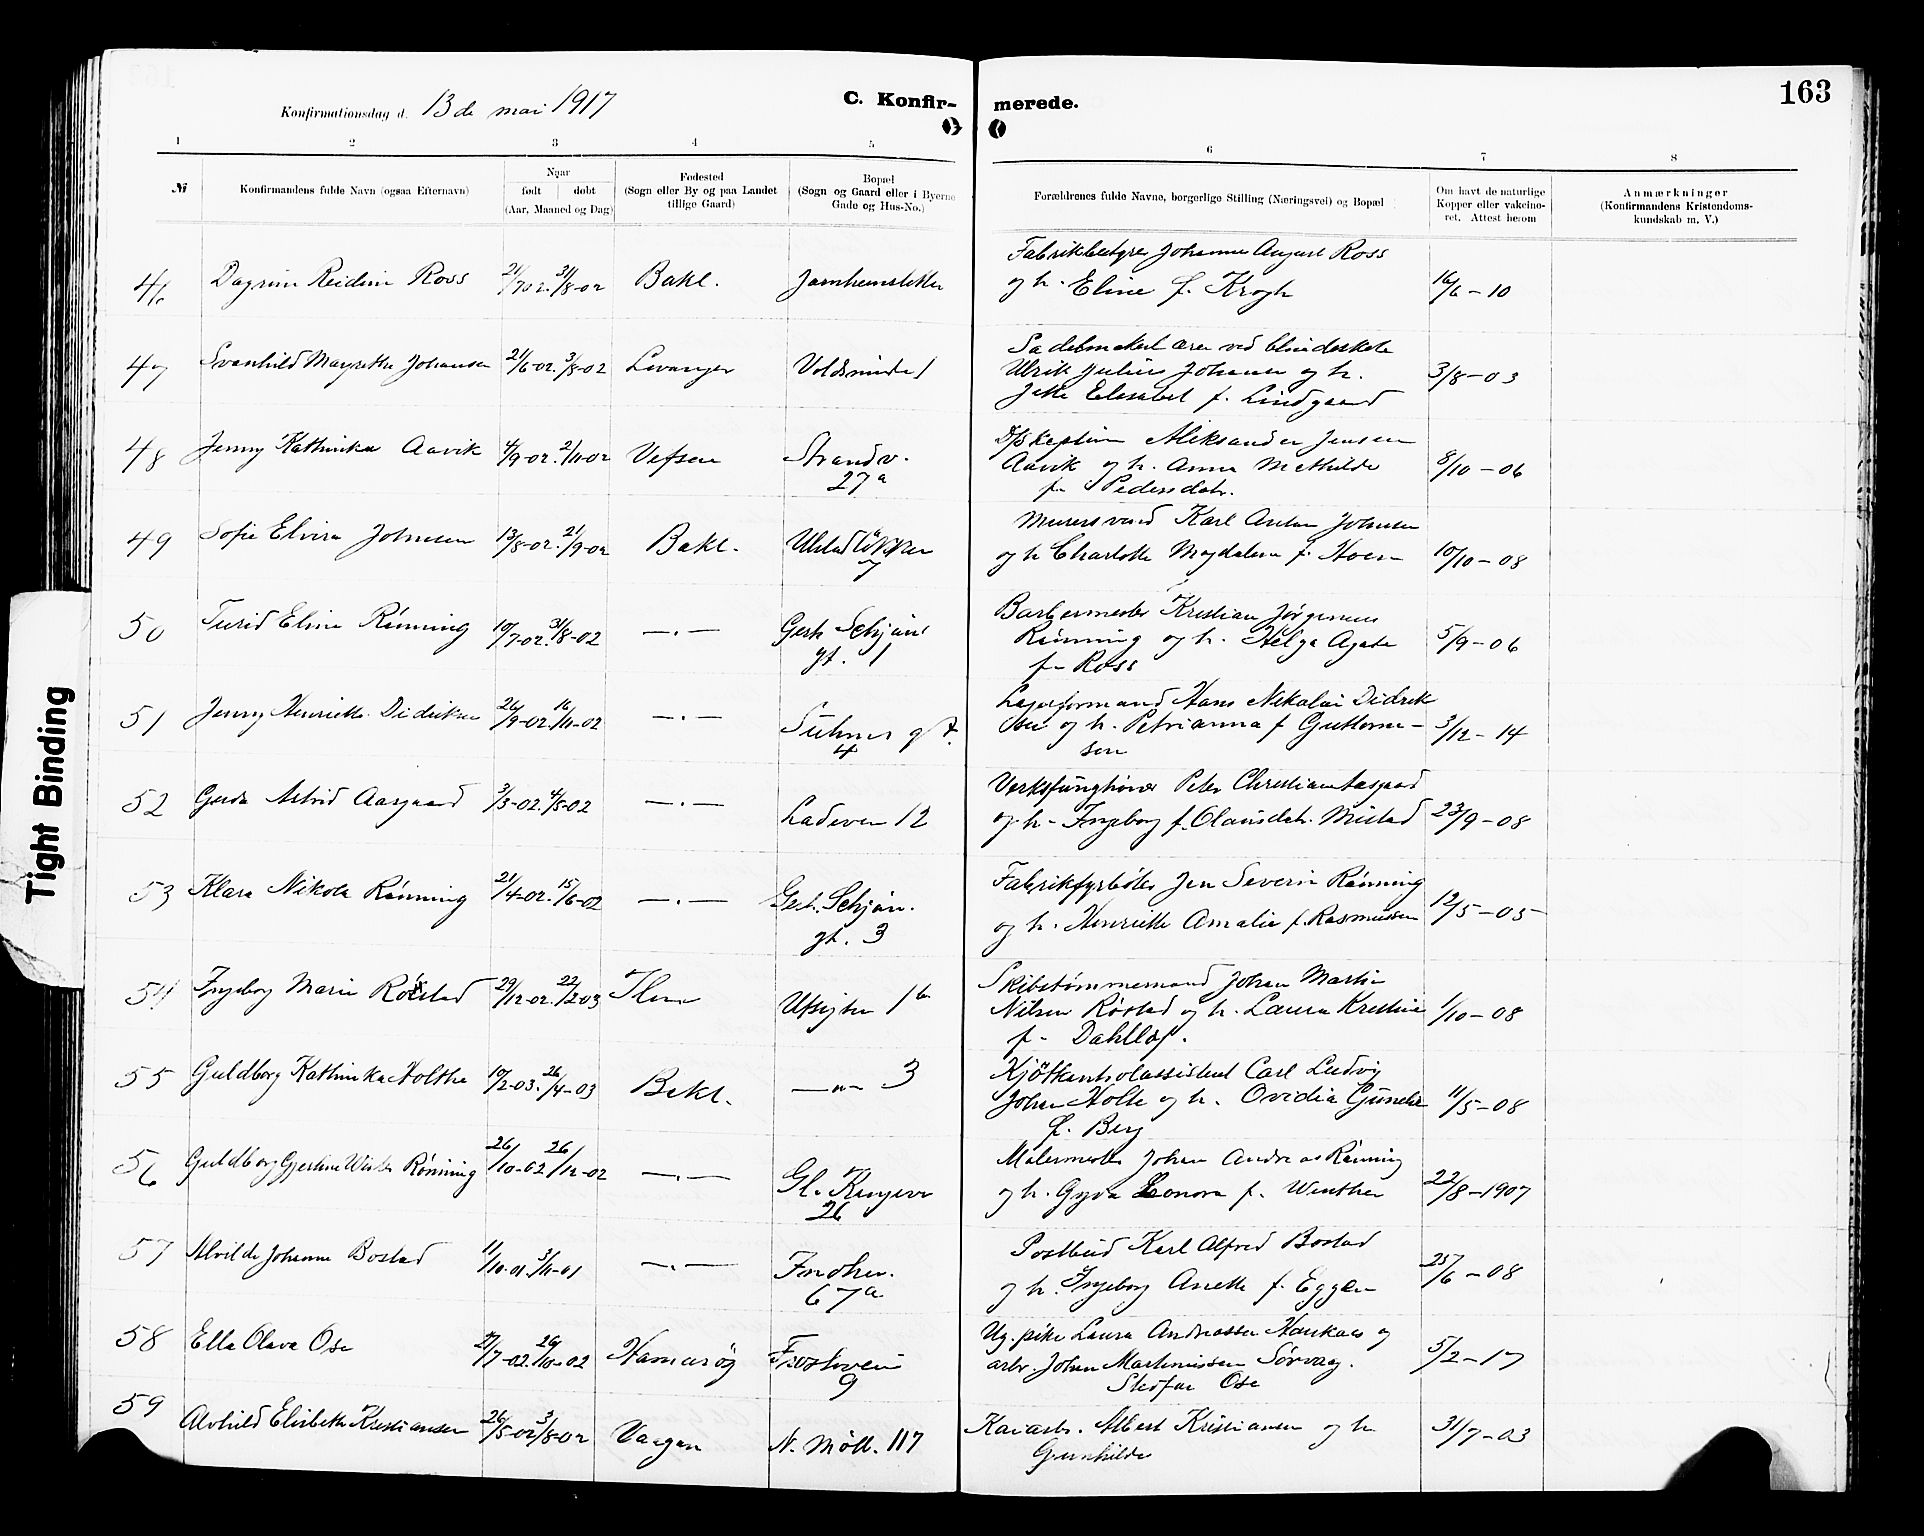 163
Konfirmationsdag d. 13de mai 1917
C. Konfir- merede.
1 2 3 4 5 6 7 8
№
Konfirmandens fulde Navn (ogsaa Efternavn)
Naar
født døbt
(Aar, Maaned og Dag)
Fødested
(Sogn eller By og paa Landet
tillige Gaard)
Bopæl
(Sogn og Gaard eller i Byerne
Gade og Hus-No.)
Forældrenes fulde Navne, borgerlige Stilling (Næringsvei) og Bopæl
Om havt de naturlige
Kopper eller vakcine-
ret. Attest herom
Anmærkninger
(Konfirmandens Kristendoms-
kundskab m. V.)
46 Dagrun Reidun Ross 21/7 02. 31/8-02 Bakl.
Johannes August Ross
og h. Eline f. Krogh
16/6-10
47 Svanhild Margrethe Johansen 21/6-02. 3/8-02 Levanger Voldsminde 1
ved blindeskole
Ulrik Julius Johansen og h.
Elisabet f. Lindgaard
3/8-03
48 Jenny Kathinka Aavik 4/9-02. 2/11-02 Vefsen Strandv.
27a
Aleksander Jensen
Aavik og h. Anna Mathilde
f. Pedersdatr.
8/10-06
49 Sofie Elvira Johnsen 13/8-02. 21/9-02 Bakl. Ulstadløkken
7
Murersvend Karl Anton Johnsen
og h Charlotte Magdalena f. Hoem
10/10-08
50 Turid Eline Rønning 10/7-02. 31/8-02 —.— Gerh Schjøns
gt. 1
Barbermester Kristian Jørgensen
Rønning og h. Helga Agate
f. Ross
5/9-06
51 Jenny Henriette Didriksen 26/9-02. 16/11-02 —.— Suhms gt.
4
Lagerformand Hans Nikolai Didrik
sen og h. Petrianna f Guttorm-
sen
3/12-14
52 Gerda Astrid Aasgaard 3/3-02. 4/5-02 —.— Ladeveien 12
Peter Christian Aasgaard
og h. Ingeborg f. Olausdatr. Mistad
23/9-08
53 Klara Nikole Rønning 21/4-02. 15/6-02 —.— Gerh. Schjøn.
gt. 3
Fabrikfyrbøter Jen Severin Rønning
og h. Henriette Amalie f. Rasmussen
12/5-05
54 Ingeborg Marie Røstad 29/12-02. 22/2 03 Ilen Utsigten 1b
Skibstømmermand Johan Martin
Nilsen Røstad og h. Laura Kristine
f. Dahlløf.
1/10-08
55 Guldborg Kathinka Holthe 10/2-03. 26/4-03 Bakl. —"— 3
Kjøtkontrolassistent Carl Ludvig
Johan Holte og h. Ovidia Gunelie
f. Berg
11/5-08
56 Guldborg Gjertine Winter Rønning 26/10-02 26/12-02 —.—
26
Malermester Johan Andreas Rønning
og h. Gyda Leonora f. Winther
22/8-1907
57 Alvilde Johanne Bostad 11/10-01. 3/11-01 —.— Innher.
67a
Postbud Karl Alfred Bostad
og h. Ingeborg Anette f. Eggen
25/6-08
58 Ella Olava Ose 27/7-02. 26/10-02 Hamarøy Frostaveien
9
Ug. pike Laura Andreassen Haukaas og
arb. Johan Martinussen Sørvaag.
Stedfar Ose
5/2-17
59 Alvhild Elisbeth Kristiansen 26/5-02 3/8-02 Vaagan N. Møll. 117
Kaiarb. Albert Kristiansen og h
Gunhilde
31/7-03
Tight Binding